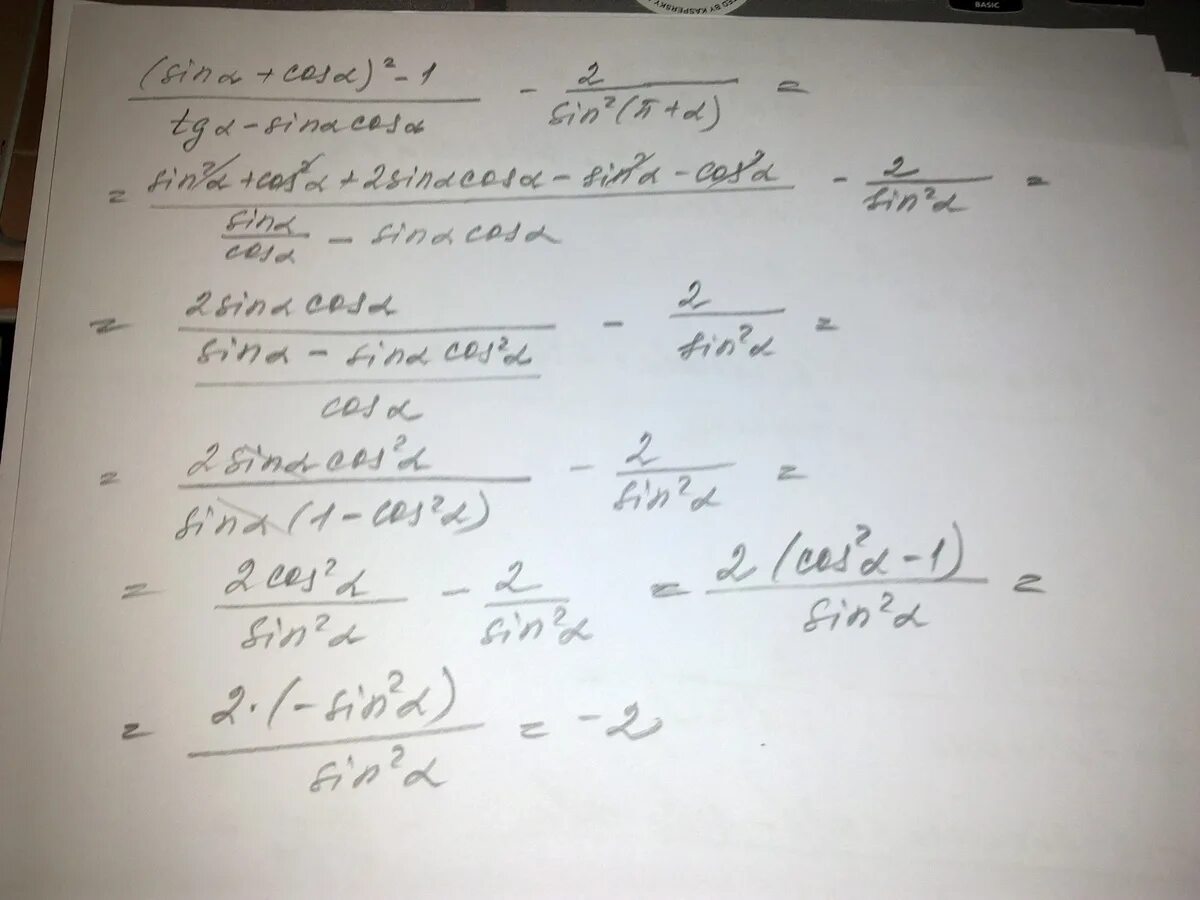 BASIC
ED BY KASPERSKY
((sinα + cosα)² - 1)/(tgα - sinα cosα) - 2/(sin²(π + α)) =
= (sin²α + cos²α + 2sinα cosα - sin²α - cos²α)/(sinα/cosα - sinα cosα) - 2/(sin²α) =
= (2sinα cosα)/((sinα - sinα cos²α)/cosα) - 2/(sin²α) =
= (2sinα cos²α)/(sinα (1 - cos²α)) - 2/(sin²α) =
= (2cos²α)/(sin²α) - 2/(sin²α) = (2(cos²α - 1))/(sin²α) =
= (2·(-sin²α))/(sin²α) = -2